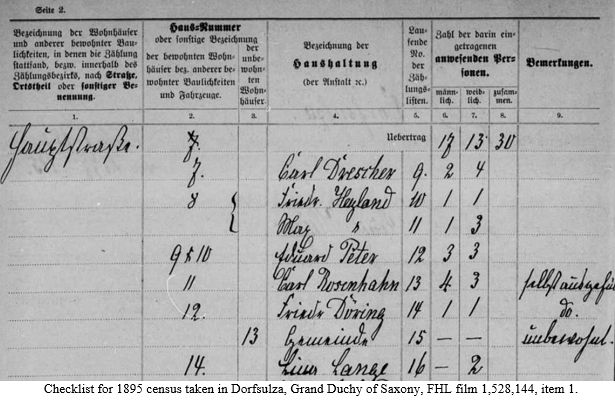 Seite 2.
Bezeichnung der Wohnhäuser und anderer bewohnter Baulichkeiten, in denen die Zählung stattfand, bezw. innerhalb des Zählungsbezirks, nach Straße, Ortstheil oder sonstiger Benennung.
Haus-Nummer
oder sonstige Bezeichnung
der bewohnten Wohnhäuser bez. anderer bewohnter Baulichkeiten und Fahrzeuge.
der unbewohnten Wohnhäuser
Bezeichnung der
Haushaltung
(der Anstalt ꝛc.)
Laufende No. der Zählungslisten.
Zahl der darin eingetragenen anwesenden Personen.
männlich.
weiblich.
zusammen.
Bemerkungen.
1. 2. 3. 4. 5. 6. 7. 8. 9.
Hauptstraße. 7. Uebertrag 17 13 30
7. Carl Drescher 9. 2 4
8 Friedr. Heyland 10 1 1
Max " 11 1 3
9 & 10 Eduard Peter 12 3 3
11 Carl Rosenhahn 13 4 3
12. Friedr Döring 14 1 1 do.
13 Gemeinde 15 — — unbewohnt.
14. Lina Lange 16 — 2
Checklist for 1895 census taken in Dorfsulza, Grand Duchy of Saxony, FHL film 1,528,144, item 1.